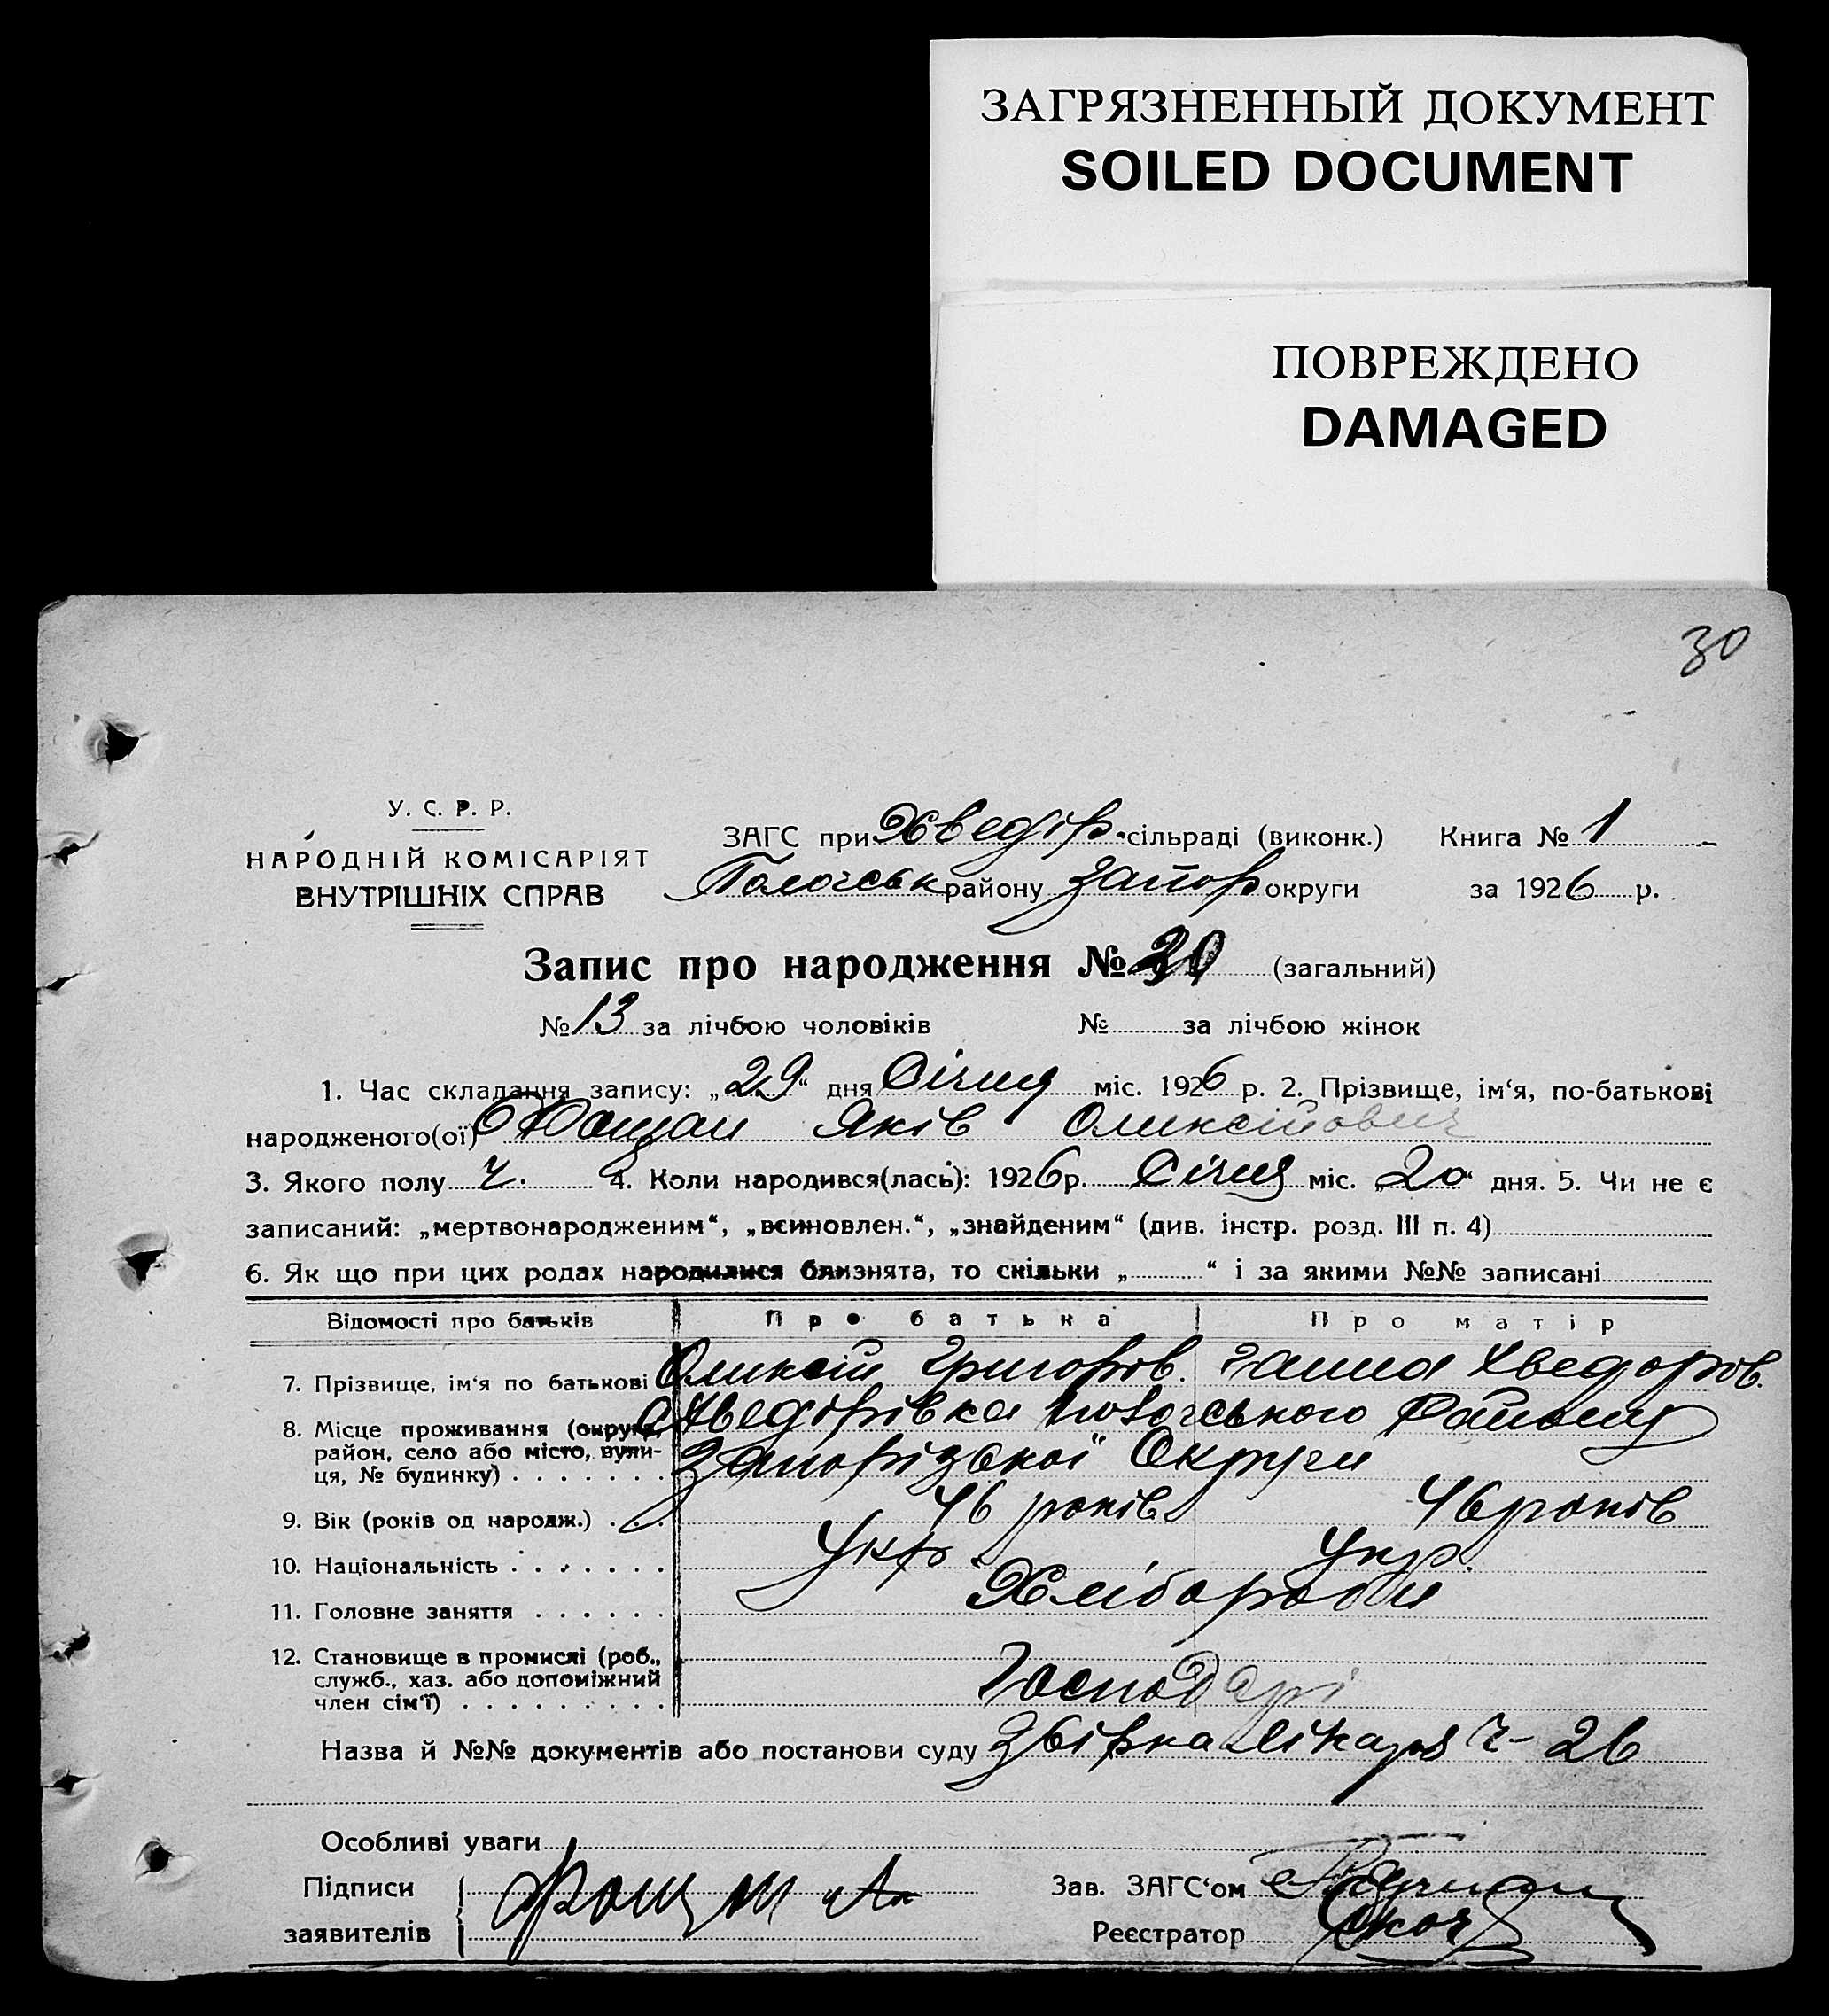 ЗАГРЯЗНЕННЫЙ ДОКУМЕНТ
SOILED DOCUMENT
ПОВРЕЖДЕНО
DAMAGED
30
У. С. Р. Р.
НАРОДНІЙ КОМІСАРІЯТ
ВНУТРІШНІХ СПРАВ
ЗАГС при Хведір. сільраді (виконк.) Книга № 1
Пологськ району Запор округи за 1926 р.
Запис про народження № 30 (загальний)
№ 13 за лічбою чоловіків № за лічбою жінок
1. Час складання запису: „29“ дня Січня міс. 1926 р. 2. Прізвище, ім‘я, по-батькові
народженого(ої) Яків Оликсійович
3. Якого полу ч. 4. Коли народився(лась): 1926 р. Січня міс. „20“ дня. 5. Чи не є
записаний: „мертвонародженим“, „всиновлен.“, „знайденим“ (див. інстр. розд. III п. 4)
6. Як що при цих родах народилися близнята, то скільки „ “ і за якими №№ записані
Відомості про батьків Про батька Про матір
7. Прізвище, ім‘я по батькові Оликсій Григоров. Ганна Хведоров.
8. Місце проживання (округа, с Хведорівка Пологського Району
район, село або місто, вули- Запорізької Округи
ця, № будинку)
9. Вік (років од народж.) 46 років 46 років
10. Національність Укр. Укр.
11. Головне заняття Хлібороби
12. Становище в промислі (роб.,
служб., хаз. або допоміжний Господарі
член сім‘ї)
Назва й №№ документів або постанови суду Збірка Лікаря ч - 26
Особливі уваги
Підписи Зав. ЗАГС‘ом
заявителів Реєстратор